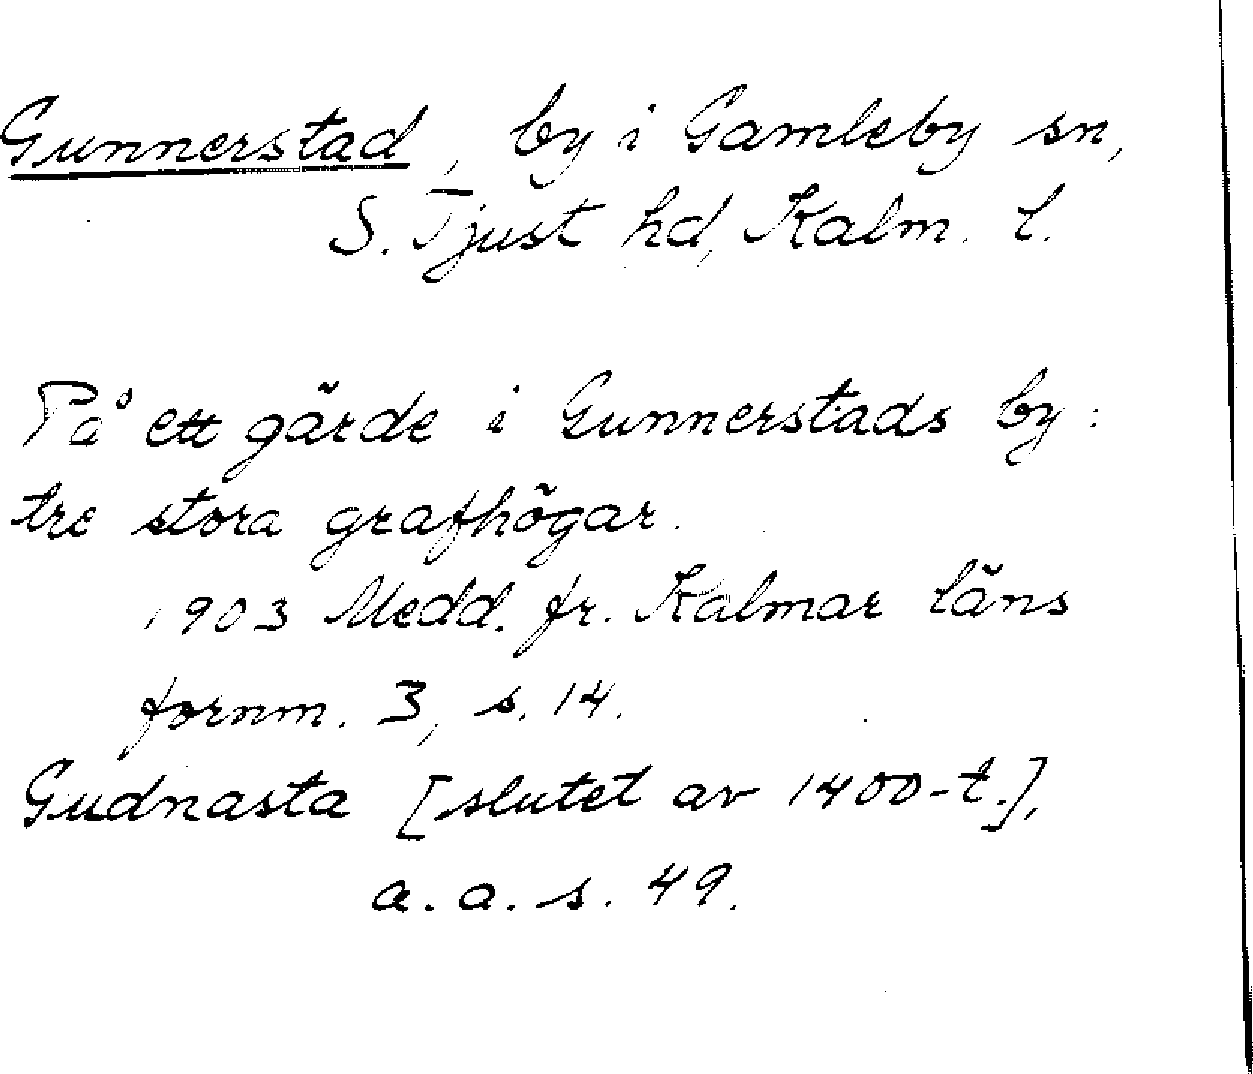 Gunnerstad, by i Gamleby sn,
S. Tjust hd, Kalm. l.
På ett gärde i Gunnerstads by:
tre stora grafhögar.
1903 Medd. fr. Kalmar läns
fornm. 3, s. 14.
Gudnasta [slutet av 1400-t.],
a. a. s. 49.